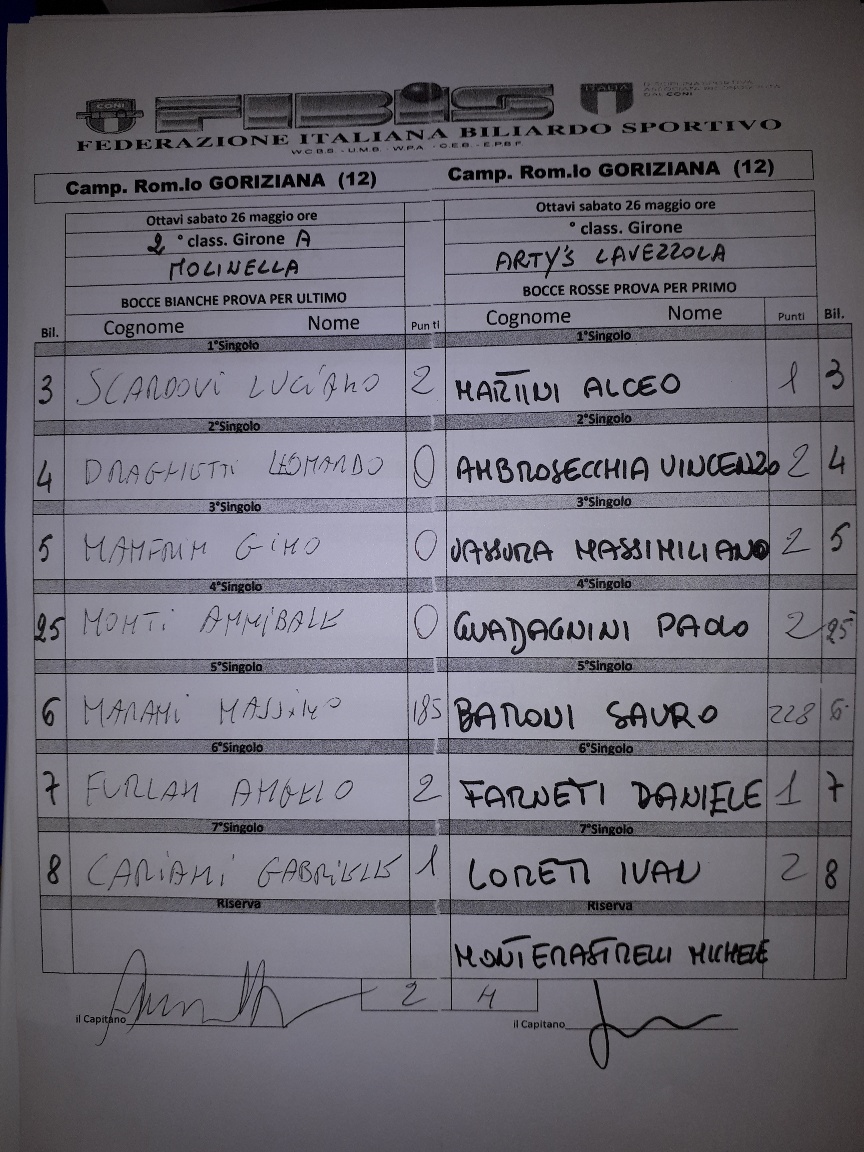 CONI FIBiS ITALIA DISCIPLINA SPORTIVA ASSOCIATA RICONOSCIUTA DAL CONI
FEDERAZIONE ITALIANA BILIARDO SPORTIVO
W.C.B.S - U.M.B. - W.P.A - C.E.B. - E.P.B.F
Camp. Rom.lo GORIZIANA (12) Camp. Rom.lo GORIZIANA (12)
Ottavi sabato 26 maggio ore Ottavi sabato 26 maggio ore
2 ° class. Girone A ° class. Girone
MOLINELLA ARTY'S LAVEZZOLA
BOCCE BIANCHE PROVA PER ULTIMO BOCCE ROSSE PROVA PER PRIMO
Bil. Cognome Nome Punti Cognome Nome Punti Bil.
1°Singolo 1°Singolo
3 SCARDOVI LUCIANO 2 MARTINI ALCEO 1 3
2°Singolo 2°Singolo
4 DRAGHETTI LEONARDO 0 AMBROSECCHIA VINCENZO 2 4
3°Singolo 3°Singolo
5 MANFRIN GINO 0 VASSURA MASSIMILIANO 2 5
4°Singolo 4°Singolo
25 MONTI ANNIBALE 0 GUADAGNINI PAOLO 2 25
5°Singolo 5°Singolo
6 MARANI MASSIMO 185 BARONI SAURO 228 6
6°Singolo 6°Singolo
7 FURLAN ANGELO 2 FARNETI DANIELE 1 7
7°Singolo 7°Singolo
8 CARIANI GABRIELE 1 LORETI IVAN 2 8
Riserva Riserva
MONTERASTRELLI MICHELE
2 4
il Capitano il Capitano